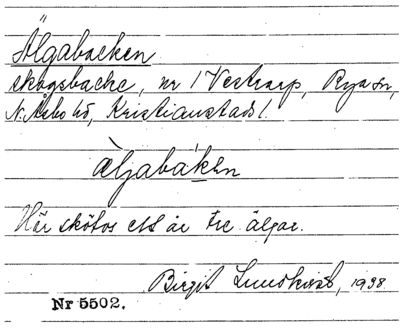 Älgabacken
skogsbacke, nr 1 Vestrarp, Rya sn,
N. Åsbo hd, Kristianstads l.
äljabákən
Här skötos ett år tre älgar.
Birgit Lundkvist, 1938
Nr 5502.